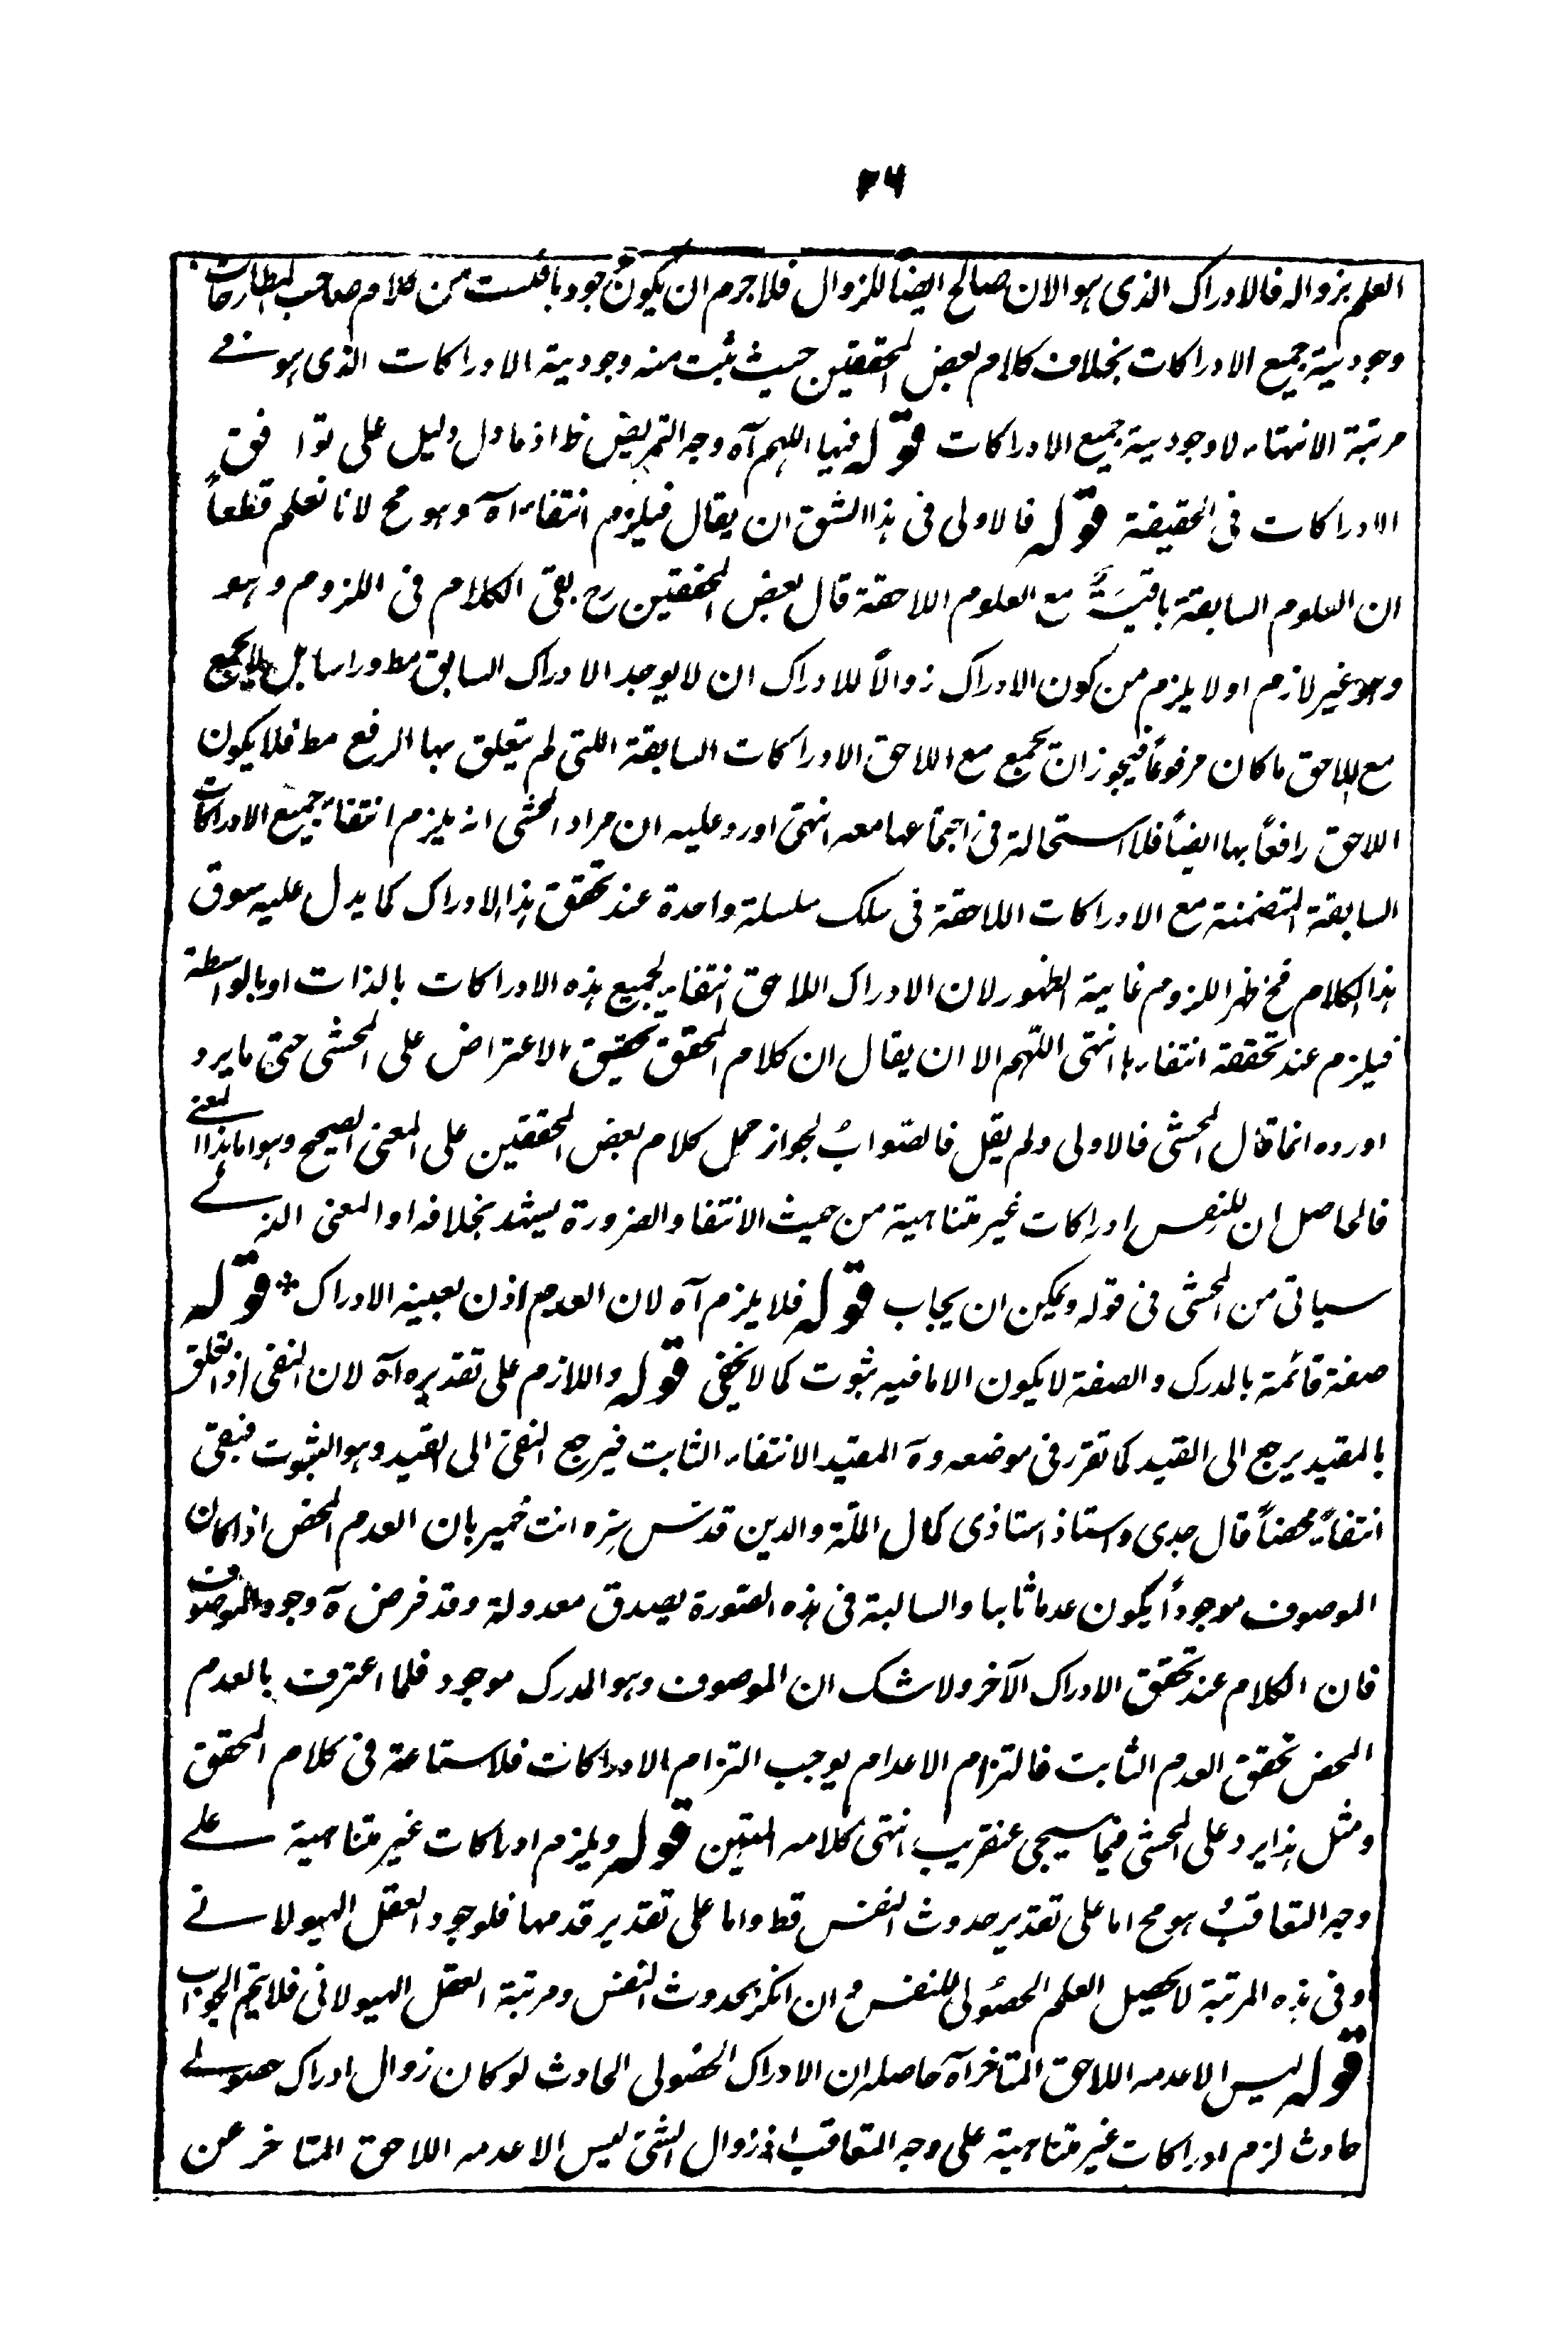 ٢٦
العلم بزواله فالادراك الذى هو الان صالح ايضاً للزوال فلاجرم ان يكون وجوديا فثبت من كلام صاحب المطارحات
وجودية جميع الادراكات بخلاف كلام بعض المحققين حيث ثبت منه وجودية الادراكات الذى هو فى
مرتبة الانتهاء لا وجودية جميع الادراكات قوله فيها اللهم آه وجه التمريض ظ اذ ما دل دليل على توافق
الادراكات فى الحقيقة قوله فالاولى فى هذا الشق ان يقال فيلزم انتفاء آه وهو مح لانا نعلم قطعاً
ان العلوم السابقة باقيةً مع العلوم اللاحقة قال بعض المحققين رح بقى الكلام فى اللزوم وهو
وهو غير لازم اولا يلزم من كون الادراك زوالاً للادراك ان لا يوجد الادراك السابق مط وراسا بل لا يجمع
مع اللاحق ما كان مرفوعاً فيجوز ان يجمع مع اللاحق الادراكات السابقة اللتى لم يتعلق بها الرفع مط فلا يكون
اللاحق رافعاً بها ايضاً فلا استحالة فى اجتماعها معه انتهى اورد عليه ان مراد المحشى انه يلزم انتفاء جميع الادراكات
السابقة المتضمنة مع الادراكات اللاحقة فى سلك سلسلة واحدة عند تحقق هذا الادراك كما يدل عليه سوق
هذا الكلام فح ظهر اللزوم غاية الظهور لان الادراك اللاحق انتفاء لجميع هذه الادراكات بالذات او بالواسطة
فيلزم عند تحققه انتفاءها انتهى اللّهم الا ان يقال ان كلام المحقق تحقيق لا اعتراض على المحشى حتى ما يرد
اورده انما قال المحشى فالاولى ولم يقل فالصّوابُ لجواز حمل كلام بعض المحققين على المعنى الصحيح وهو اما هذا المعنى
فالحاصل ان للنفس ادراكات غير متناهية من حيث الانتفا والضرورة يشهد بخلافه او المعنى الذى
سياتى من المحشى فى قوله ويمكن ان يجاب قوله فلا يلزم آه لان العدم اذن لعينه الادراك * قوله
صفة قائمة بالمدرك والصفة لا يكون الا ما فيه ثبوت كما لا يخفى قوله واللازم على تقديره آه لان النفى اذا تعلق
بالمقيد يرجع الى القيد كما تقرر فى موضعه وآ المقيد الانتفاء الثابت فيرجع النفى الى القيد وهو الثبوت فبقى
انتفاءً محضاً قال جدى واستاذ استاذى كمال الملّة والدين قدس سره انت خبير بان العدم المحض اذا كان
الموصوف موجوداً يكون عدما ثابتا والسالبة فى هذه الصّورة يصدق معدولة وقد فرض آ وجود الموصوف
فان الكلام عند تحقق الادراك الآخر ولا شك ان الموصوف وهو المدرك موجود فلما اعترف بالعدم
المحض تحقق العدم الثابت فالتزام الاعدام يوجب التزام الادراكات فلا ستماعة فى كلام المحقق
ومثل هذا يرد على المحشى فيما سيجى عنقريب انتهى كلامه المتين قوله ويلزم ادراكات غير متناهية على
وجه التعاقبُ هو مح اما على تقدير حدوث النفس قط واما على تقدير قدمها فلوجود العقل الهيولانى
وفى هذه المرتبة لا يحصيل العلم الحصُولى للنفس و ان انكر بحدوث النفس ومرتبة العقل الهيولانى فلا يتم الجواب
قوله ليس الا عدمه اللاحق المتاخر آه حاصله ان الادراك الحصولى الحادث لو كان زوال ادراك حصولى
حادث لزم ادراكات غير متناهية على وجه التعاقب اذ زوال الشئ ليس الا عدمه اللاحق المتاخر عن